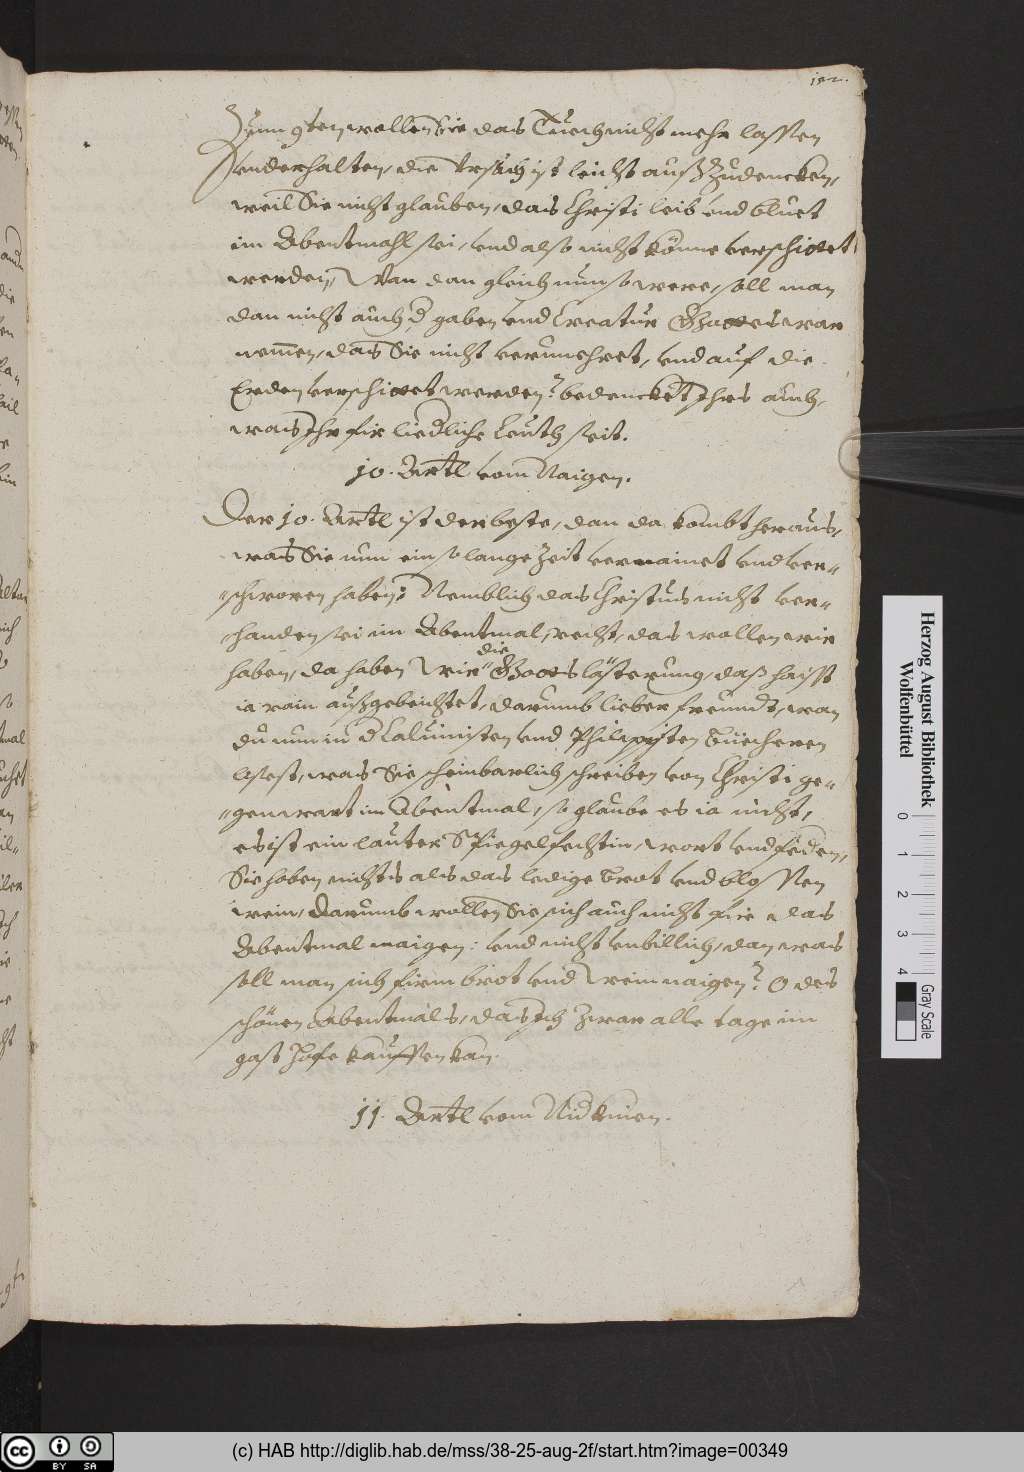 182.
Zum 9ten wollen Sie das Tuech nicht mehr lassen
vnderhalten, die vrsach ist leicht auß Zudencken,
weil Sie nicht glauben, das Christi leib vnd bluet
im Abentmahl sei, vnd also nicht könne verschitet
werden, Wan dan gleich nun so were, soll man
dan nicht auch d gaben vnd Creatur Gottes war
nemen, das Sie nicht verunehret, vnd auf die
Erden verschitet werden? bedencket Ihrs auch,
was Ihr fir liedliche Leuth seit.
10. Artl vom Naigen.
Der 10. Artl ist der beste, dan da kombt heraus,
was Sie nun ein so lange Zeit vermainet vnd ver-
schworen haben: Nemblich das Christus nicht ver-
handen sei im Abentmal, recht, das wollen wir
haben, da haben Wir die Gottslästerung, das haist
ia rain außgebeichtet, darumb lieber freundt, wan
du nun in d Caluinisten vnd Philipisten Büecheren
lisest, was Sie scheinbarlich schreiben von Christi ge-
genwart im Abentmal, so glaube es ia nicht,
es ist ein lauter Spiegelfechtin, wort vnd
Sie haben nichts als das ledige Brot vnd blossen
wein, Darumb wollen Sie sich auch nicht fir das
Abentmal naigen: vnd nicht vnbillich, dan was
soll man sich firm brot vnd Wein naigen? O des
schönen Abentmals, das Ich Zwar alle tage im
gast Hofe kauffen kan.
11. Artl vom Nidknien.
Herzog August Bibliothek
Wolfenbüttel
0 1 2 3 4
Gray Scale
cc BY SA
(c) HAB http://diglib.hab.de/mss/38-25-aug-2f/start.htm?image=00349